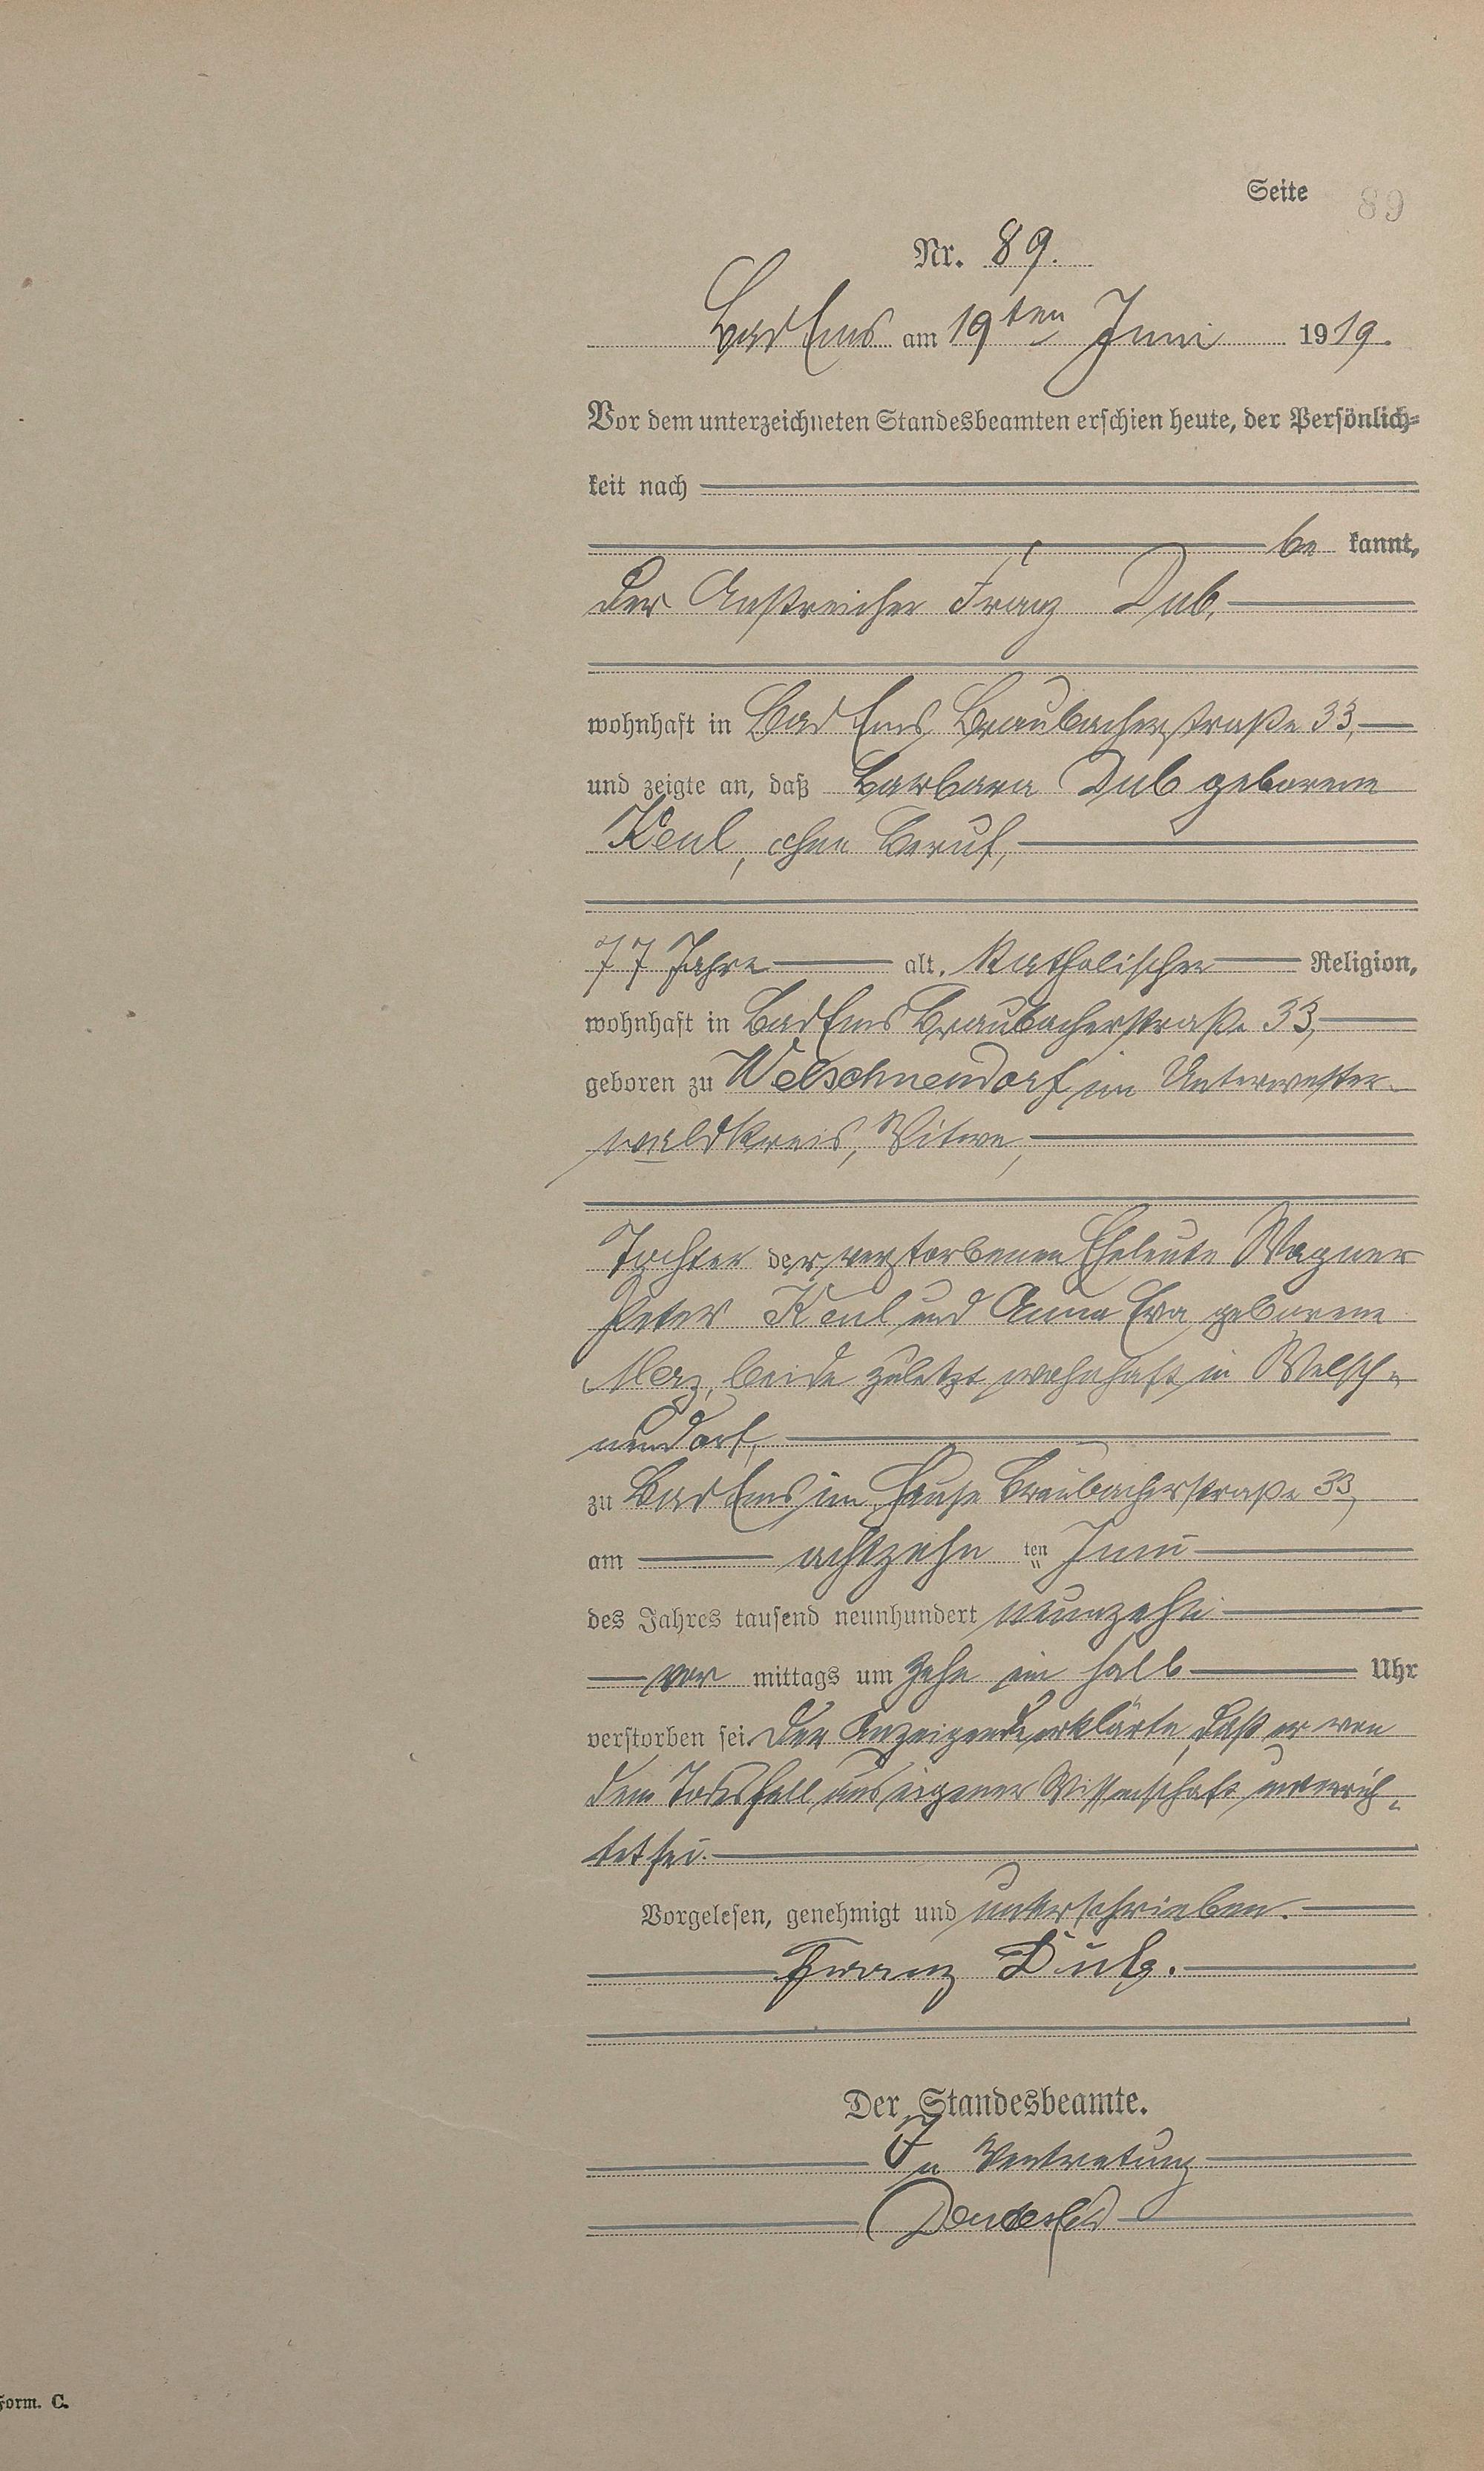 Seite 89
Nr. 89.
Bad Ems am 19ten Juni 1919.
Vor dem unterzeichneten Standesbeamten erschien heute, der Persönlich-
keit nach
be kannt,
der Anstreicher Franz Dub,
wohnhaft in Bad Ems, Braubacherstraße 33,
und zeigte an, daß Barbara Dub geborene
Keul, ohne Beruf,
77 Jahre alt, katholischer Religion,
wohnhaft in Bad Ems Braubacherstraße 33,
geboren zu Welschneudorf im Unterwester-
waldkreis, Witwe,
Tochter der verstorbenen Eheleute Wagner
Peter Keul und Anna Eva geborene
Merz, beide zuletzt wohnhaft in Welsch-
neudorf,
zu Bad Ems im Hause Braubacherstraße 33,
am achtzehn ten Juni
des Jahres tausend neunhundert neunzehn
vor mittags um zehn ein halb Uhr
verstorben sei. Der Anzeigende erklärte, daß er von
dem Todesfall aus eigener Wissenschaft unterrich-
tet sei.
Vorgelesen, genehmigt und unterschrieben.
Franz
Der Standesbeamte.
In Vertretung
Form. C.